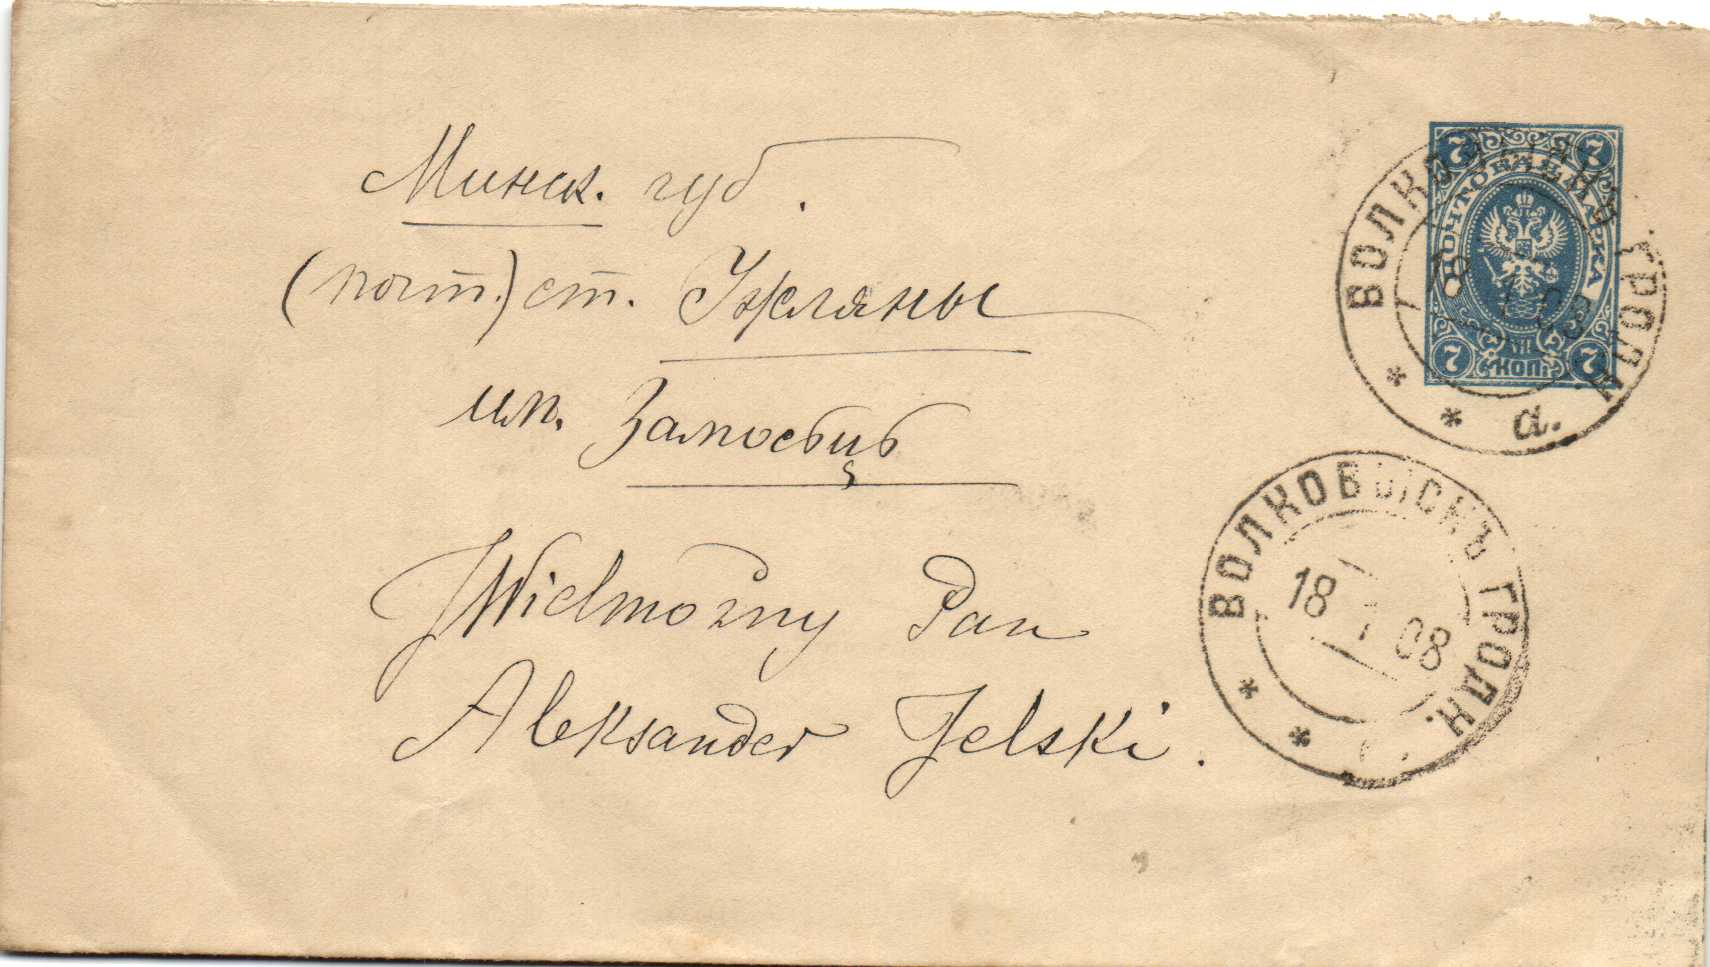 Минск. губ.
(почт.) ст. Узляны
им. Замосьць
JWielmożny Pan
Aleksander Jelski.
7 7
ПОЧТОВАЯ МАРКА
7 VII 7
КОП.
ВОЛКОВЫСКЪ ГРОДН.
08
* * а.
ВОЛКОВЫСКЪ ГРОДН.
18 1 08
* *